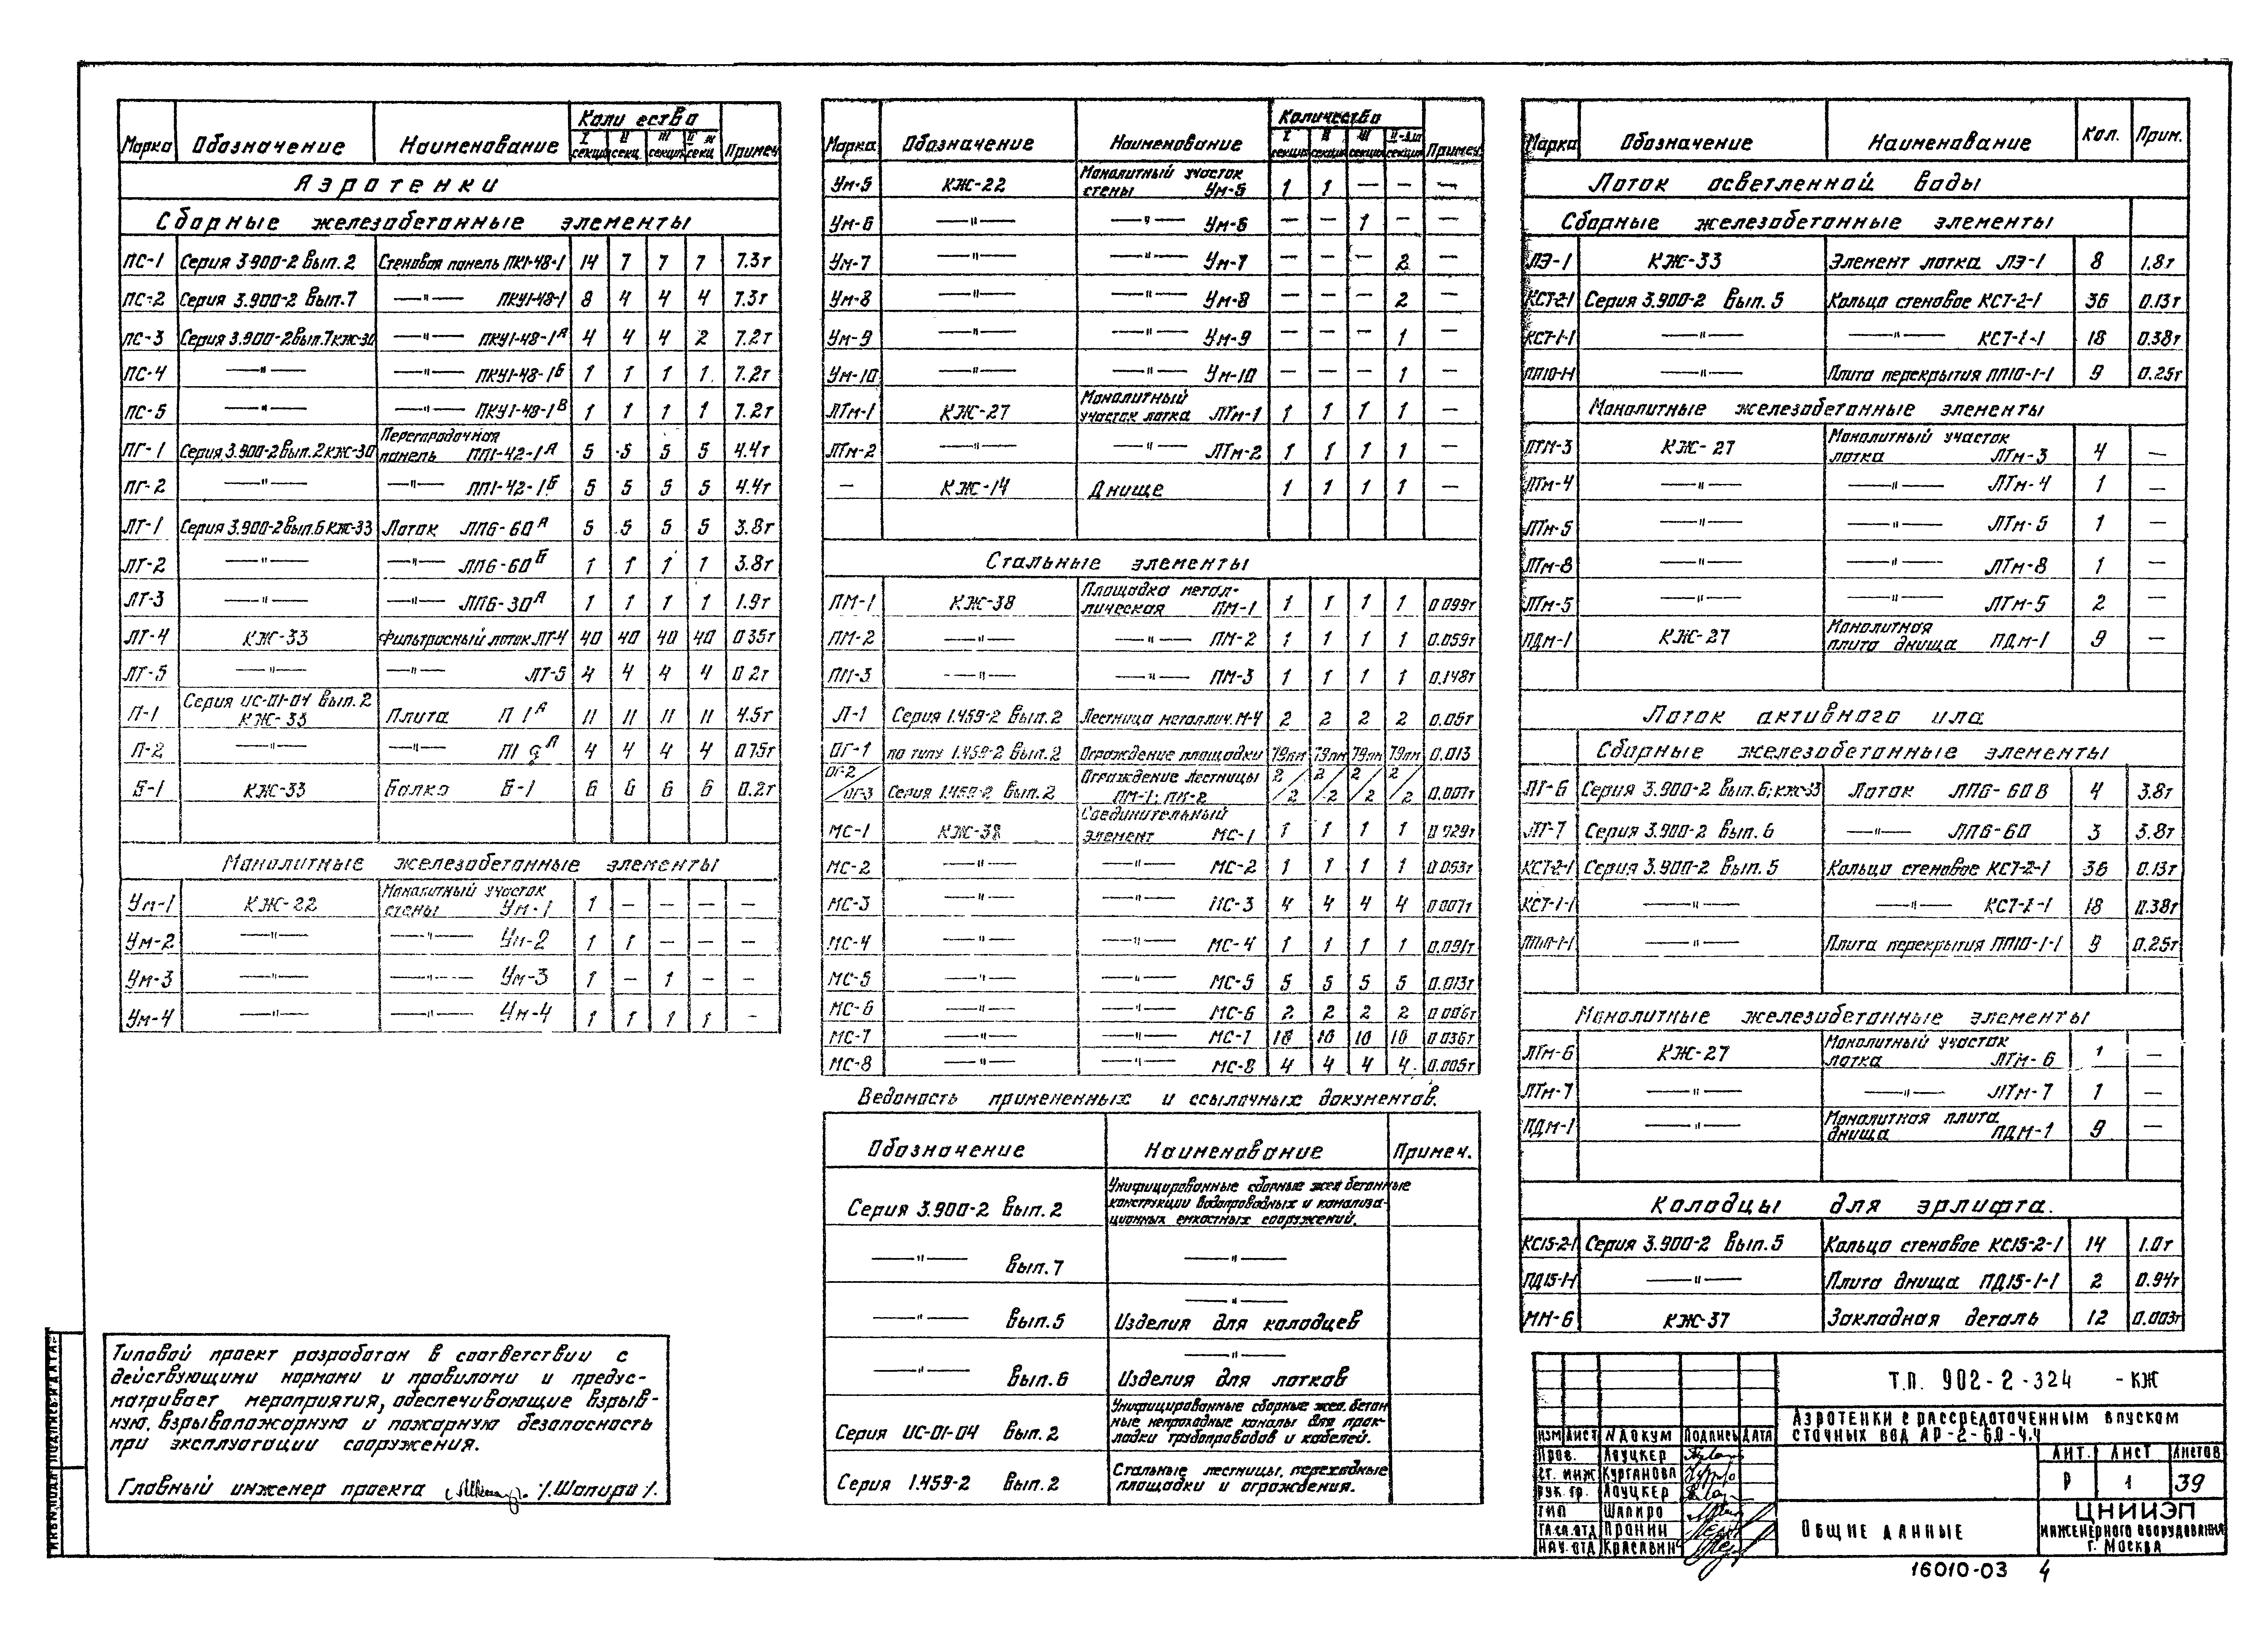 Марка Обозначение Наименование Количества Примеч
I секция II секц. III секция II-III секц
Аэротенки
Сборные железобетонные элементы
ПС-1 Серия 3.900-2 Вып. 2 Стеновая панель ПК1-48-1 14 7 7 7 7.3т
ПС-2 Серия 3.900-2 Вып. 7 —"— ПКУ1-48-1 8 4 4 4 7.3т
ПС-3 Серия 3.900-2 Вып. 7 КЖ-30 —"— ПКУ1-48-1А 4 4 4 2 7.2т
ПС-4 —"— —"— ПКУ1-48-1Б 1 1 1 1 7.2т
ПС-5 —"— —"— ПКУ1-48-1В 1 1 1 1 7.2т
ПГ-1 Серия 3.900-2 Вып. 2 КЖ-30 Перегородочная панель ПП1-42-1А 5 5 5 5 4.4т
ПГ-2 —"— —"— ПП1-42-1Б 5 5 5 5 4.4т
ЛТ-1 Серия 3.900-2 Вып. 6 КЖ-33 Лоток ЛП6-60А 5 5 5 5 3.8т
ЛТ-2 —"— —"— ЛП6-60Б 1 1 1 1 3.8т
ЛТ-3 —"— —"— ЛП6-30А 1 1 1 1 1.9т
ЛТ-4 КЖ-33 Фильтросный лоток ЛТ-4 40 40 40 40 0.35т
ЛТ-5 —"— —"— ЛТ-5 4 4 4 4 0.2т
П-1 Серия ИС-01-04 Вып. 2 КЖ-33 Плита П1А 11 11 11 11 4.5т
П-2 —"— —"— 4 4 4 4 0.75т
Б-1 КЖ-33 Балка Б-1 6 6 6 6 0.2т
Монолитные железобетонные элементы
Ум-1 КЖ-22 Монолитный участок стены Ум-1 1 — — — —
Ум-2 —"— —"— Ум-2 1 1 — — —
Ум-3 —"— —"— Ум-3 1 — 1 — —
Ум-4 —"— —"— Ум-4 1 1 1 1 —
Типовой проект разработан в соответствии с
действующими нормами и правилами и предус-
матривает мероприятия, обеспечивающие взрыв-
ную, взрывопожарную и пожарную безопасность
при эксплуатации сооружения.
Главный инженер проекта /Шапиро/.
Марка Обозначение Наименование Количество Примеч.
I секция II секция III секция секция
Ум-5 КЖ-22 Монолитный участок стены Ум-5 1 1 — — —
Ум-6 —"— —"— Ум-6 — — 1 — —
Ум-7 —"— —"— Ум-7 — — — 2 —
Ум-8 —"— —"— Ум-8 — — — 2 —
Ум-9 —"— —"— Ум-9 — — — 1 —
Ум-10 —"— —"— Ум-10 — — — 1 —
ЛТм-1 КЖ-27 Монолитный участок лотка ЛТм-1 1 1 1 1 —
ЛТм-2 —"— —"— ЛТм-2 1 1 1 1 —
— КЖ-14 Днище 1 1 1 1 —
Стальные элементы
ПМ-1 КЖ-38 Площадка метал-лическая ПМ-1 1 1 1 1 0.099т
ПМ-2 —"— —"— ПМ-2 1 1 1 1 0.059т
ПМ-3 —"— —"— ПМ-3 1 1 1 1 0.148т
Л-1 Серия 1.459-2 Вып. 2 Лестница металлич. М-4 2 2 2 2 0.05т
ОГ-1 по типу 1.459-2 Вып. 2 Ограждение площадки 79пм 79пм 79пм 79пм 0.013
ОГ-2/ОГ-3 Серия 1.459-2 Вып. 2 Ограждение лестницы ПМ-1; ПМ-2 2/2 2/2 2/2 2/2 0.007т
МС-1 КЖ-38 Соединительный элемент МС-1 1 1 1 1 0.029т
МС-2 —"— —"— МС-2 1 1 1 1 0.053т
МС-3 —"— —"— МС-3 4 4 4 4 0.007т
МС-4 —"— —"— МС-4 1 1 1 1 0.091т
МС-5 —"— —"— МС-5 5 5 5 5 0.013т
МС-6 —"— —"— МС-6 2 2 2 2 0.006т
МС-7 —"— —"— МС-7 10 10 10 10 0.036т
МС-8 —"— —"— МС-8 4 4 4 4 0.005т
Ведомость примененных и ссылочных документов.
Обозначение Наименование Примеч.
Серия 3.900-2 Вып. 2 Унифицированные сборные жел бетонные
конструкции водопроводных и канализа-
ционных емкостных сооружений.
—"— Вып. 7 —"—
—"— Вып. 5 —"—
Изделия для колодцев
—"— Вып. 6 —"—
Изделия для лотков
Серия ИС-01-04 Вып. 2 Унифицированные сборные жел. бетон
ные непроходные каналы для прок-
ладки трубопроводов и кабелей.
Серия 1.459-2 Вып. 2 Стальные лестницы, переходные
площадки и ограждения.
Марка Обозначение Наименование Кол. Прим.
Лоток осветленной воды
Сборные железобетонные элементы
ЛЭ-1 КЖ-33 Элемент лотка ЛЭ-1 8 1.8т
КС7-2-1 Серия 3.900-2 Вып. 5 Кольцо стеновое КС7-2-1 36 0.13т
КС7-1-1 —"— —"— КС7-1-1 18 0.38т
ПП10-1-1 —"— Плита перекрытия ПП10-1-1 9 0.25т
Монолитные железобетонные элементы
ЛТм-3 КЖ-27 Монолитный участок лотка ЛТм-3 4 —
ЛТм-4 —"— —"— ЛТм-4 1 —
ЛТм-5 —"— —"— ЛТм-5 1 —
ЛТм-8 —"— —"— ЛТм-8 1 —
ЛТм-5 —"— —"— ЛТм-5 2 —
ПДм-1 КЖ-27 Монолитная плита днища ПДм-1 9 —
Лоток активного ила
Сборные железобетонные элементы
ЛТ-6 Серия 3.900-2 Вып. 6; КЖ-33 Лоток ЛП6-60В 4 3.8т
ЛТ-7 Серия 3.900-2 Вып. 6 —"— ЛП6-60 3 3.8т
КС7-2-1 Серия 3.900-2 Вып. 5 Кольцо стеновое КС7-2-1 36 0.13т
КС7-1-1 —"— —"— КС7-1-1 18 0.38т
ПП10-1-1 —"— Плита перекрытия ПП10-1-1 9 0.25т
Монолитные железобетонные элементы
ЛТм-6 КЖ-27 Монолитный участок лотка ЛТм-6 1 —
ЛТм-7 —"— —"— ЛТм-7 1 —
ПДм-1 —"— Монолитная плита днища ПДм-1 9 —
Колодцы для эрлифта.
КС15-2-1 Серия 3.900-2 Вып. 5 Кольцо стеновое КС15-2-1 14 1.0т
ПД15-1-1 —"— Плита днища ПД15-1-1 2 0.94т
МН-6 КЖ-37 Закладная деталь 12 0.003т
Т.П. 902-2-324 -КЖ
Аэротенки с рассредоточенным впуском
сточных вод АР-2-6.0-4.4
Изм Лист N докум Подпись Дата
Пров. Лоуцкер
Ст. инж Курганова
Рук. гр. Лоуцкер
ГИП Шапиро
Гл.сп.отд Пронин
Нач. отд Красавин
Лит. Лист Листов
Р 1 39
Общие данные
ЦНИИЭП
инженерного оборудования
г. Москва
16010-03 4